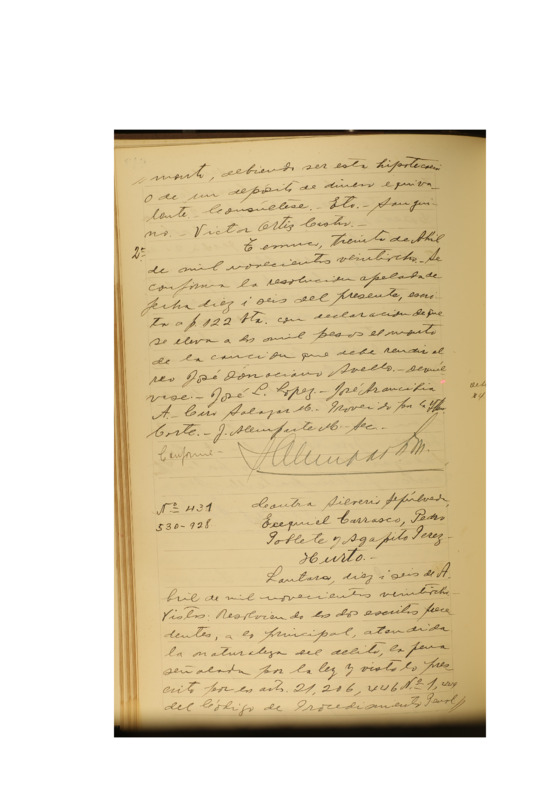 monto, debiendo ser esta hipotecaria
o de un depósito de dinero equiva-
lente. Consúltese. - Eto. - Sangui-
no. - Victor Ortiz Castro. -
2ª Temuco, treinta de Abril
de mil novecientos veintiocho. - Se
confirma la resolucion apelada de
fecha diez i seis del presente, escri-
ta a f. 122 vta. con declaracion de que
se eleva a dos mil pesos el monto
de la caucion que debe rendir el
reo José Avello. - Devuél
vase. - José L. Lopez. - José Arancibia
A. Ciro Salazar M. - Proveido por la
Corte. - J. Alemparte M. Sec.
Conforme. -
Nº 431 Contra Silverio Sepúlveda,
530-928 Ezequiel Carrasco, Pedro
Poblete y Agapito Perez. -
Hurto. -
Lautaro, diez i seis de A-
bril de mil novecientos veintiocho.
Vistos: Resolviendo los dos escritos prece
dentes, a lo principal, atendida
la naturaleza del delito, la pena
señalada por la ley y visto lo pres-
crito por los arts. 21, 206, 446 Nº 1,
del Código de Procedimiento Penal